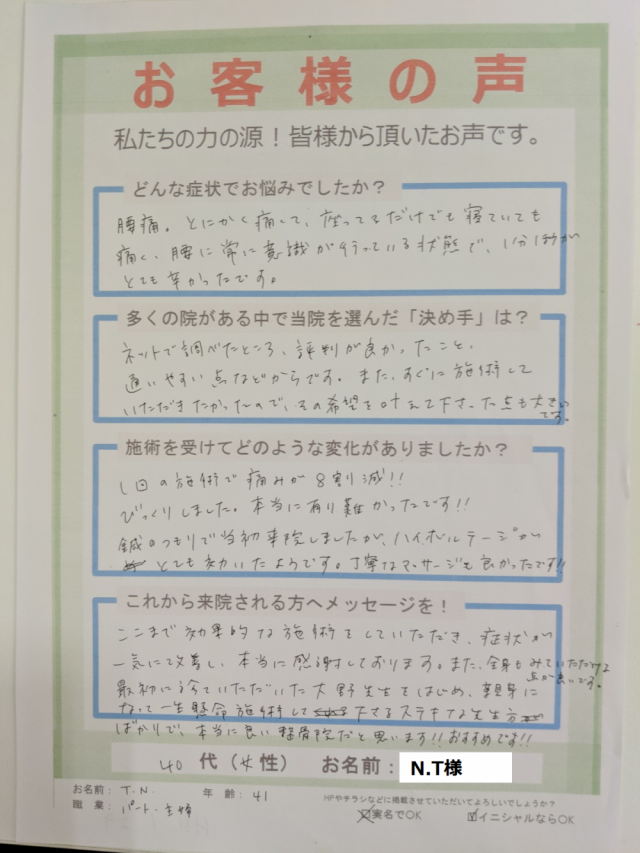 お客様の声
私たちの力の源！皆様から頂いたお声です。
どんな症状でお悩みでしたか？
腰痛。とにかく痛くて、座ってるだけでも寝ていても
痛く、腰に常に意識が行っている状態で、1分1秒が
とても辛かったです。
多くの院がある中で当院を選んだ「決め手」は？
ネットで調べたところ、評判が良かったこと、
通いやすい点などからです。また、すぐに施術して
いただきたかったので、その希望を叶えて下さった点も大きい
です。
施術を受けてどのような変化がありましたか？
1回の施術で痛みが8割減!!
びっくりしました。本当に有り難かったです!!
鍼のつもりで当初来院しましたが、ハイボルテージが
とても効いたようです。丁寧なマッサージも良かったです!!
これから来院される方へメッセージを！
ここまで効果的な施術をしていただき、症状が
一気に改善し、本当に感謝しております。また、全身もみていただける
点が良いです。
最初に診ていただいた大野先生をはじめ、親身に
なって一生懸命施術して下さるステキな先生方
ばかりで、本当に良い整骨院だと思います!!おすすめです!!
40代（女性） お名前：N.T様
お名前：T.N. 年齢：41
HPやチラシなどに掲載させていただいてよろしいでしょうか？
職業：パート・主婦 □実名でOK ☑イニシャルならOK